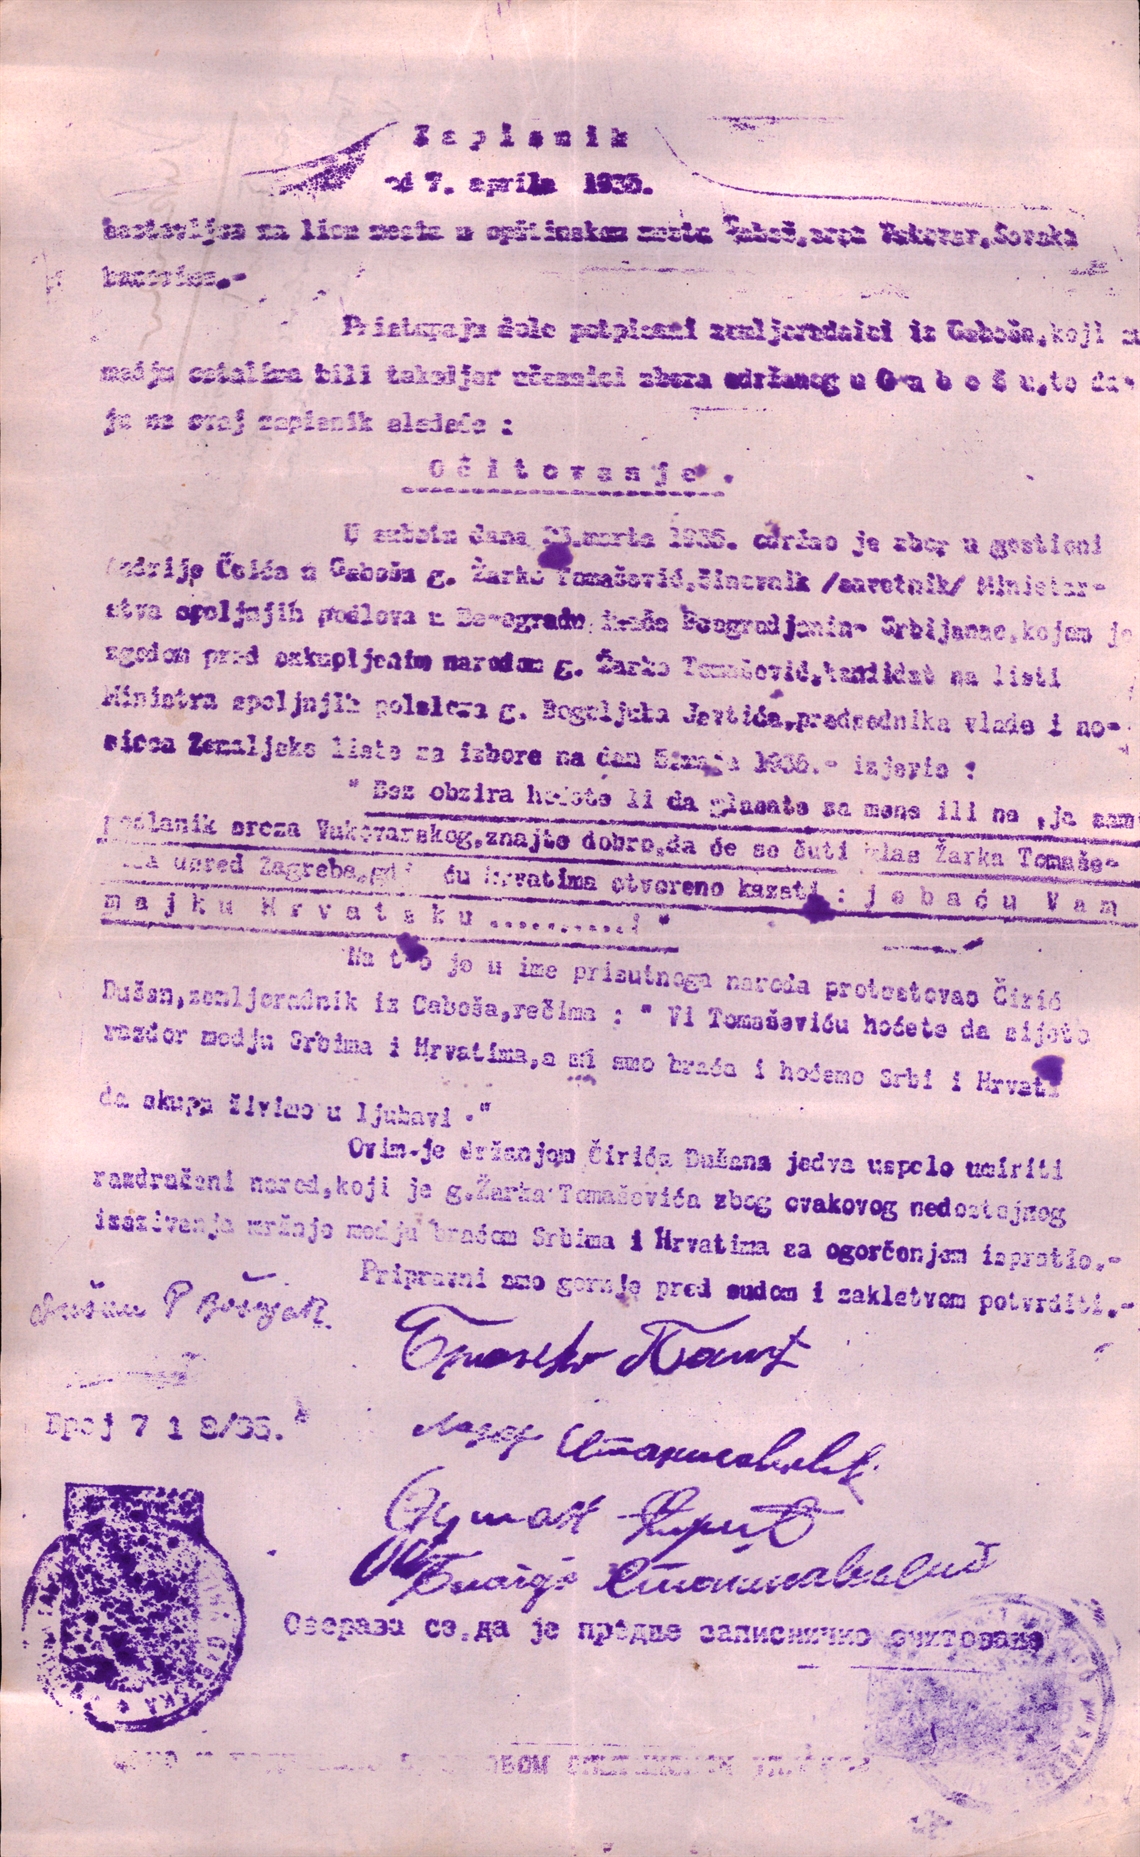 Z a p i s n i k
od 7. aprila 1935.
sastavljen na licu mesta u opštinskom mestu Gaboš,sreza Vukovar,Savska
banovina.-
Pristupaju dole potpisani zemljoradnici iz Gaboša,koji su
medju ostalima bili takodjer učesnici zbora održanog u G a b o š u,te da-
ju na ovaj zapisnik sledeće :
O č i t o v a n j e .
U subotu dana marta 1935. održao je zbor u gostioni
Andrije Čolća u Gabošu g. Žarko Tomašević,činovnik /savetnik/ Ministar-
stva spoljnjih poslova u Beogradu inače Beogradjanin- Srbijanac,kojom je
zgodom pred sakupljenim narodom g. Žarko Tomašević,kandidat na listi
Ministra spoljnjih poslova g. Bogoljuba Jevtića,predsednika vlade i no-
sioca Zemaljske liste za izbore na dan 5.maja 1935.- izjavio :
" Bez obzira hoćete li da glasate za mene ili ne ,ja sam
poslanik sreza Vukovarskog,znajte dobro,da će se čuti glas Žarka Tomaše-
usred Zagreba,gdi ću Hrvatima otvoreno kazati : j e b a ć u V a m
m a j k u H r v a t s k u ..........! "
Na to je u ime prisutnoga naroda protestovao Čirić
Dušan,zemljoradnik iz Gaboša,rečima : " Vi Tomaševiću hoćete da sijete
razdor medju Srbima i Hrvatima,a mi smo braća i hoćemo Srbi i Hrvati
da skupa živimo u ljubavi ."
Ovim-je držanjem Čirića Dušana jedva uspelo umiriti
razdraženi narod,koji je g.Žarka Tomaševića zbog ovakovog nedostojnog
izazivanja mržnje medju braćom Srbima i Hrvatima sa ogorčenjem ispratio.-
Pripravni smo gornje pred sudom i zakletvom potvrditi.-
Број 7 1 8/35.
Лазар Станисављевић
Душан Ћирић
Станисављевић
Оверава се,да је предње записничко очитовање